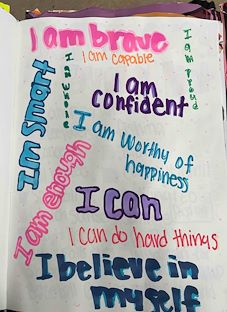 I am brave
I am capable
I am proud
I am
I am
confident
I'm smart
I am Worthy of
happiness
I am enough
I can
I Can do hard things
I believe in
myself